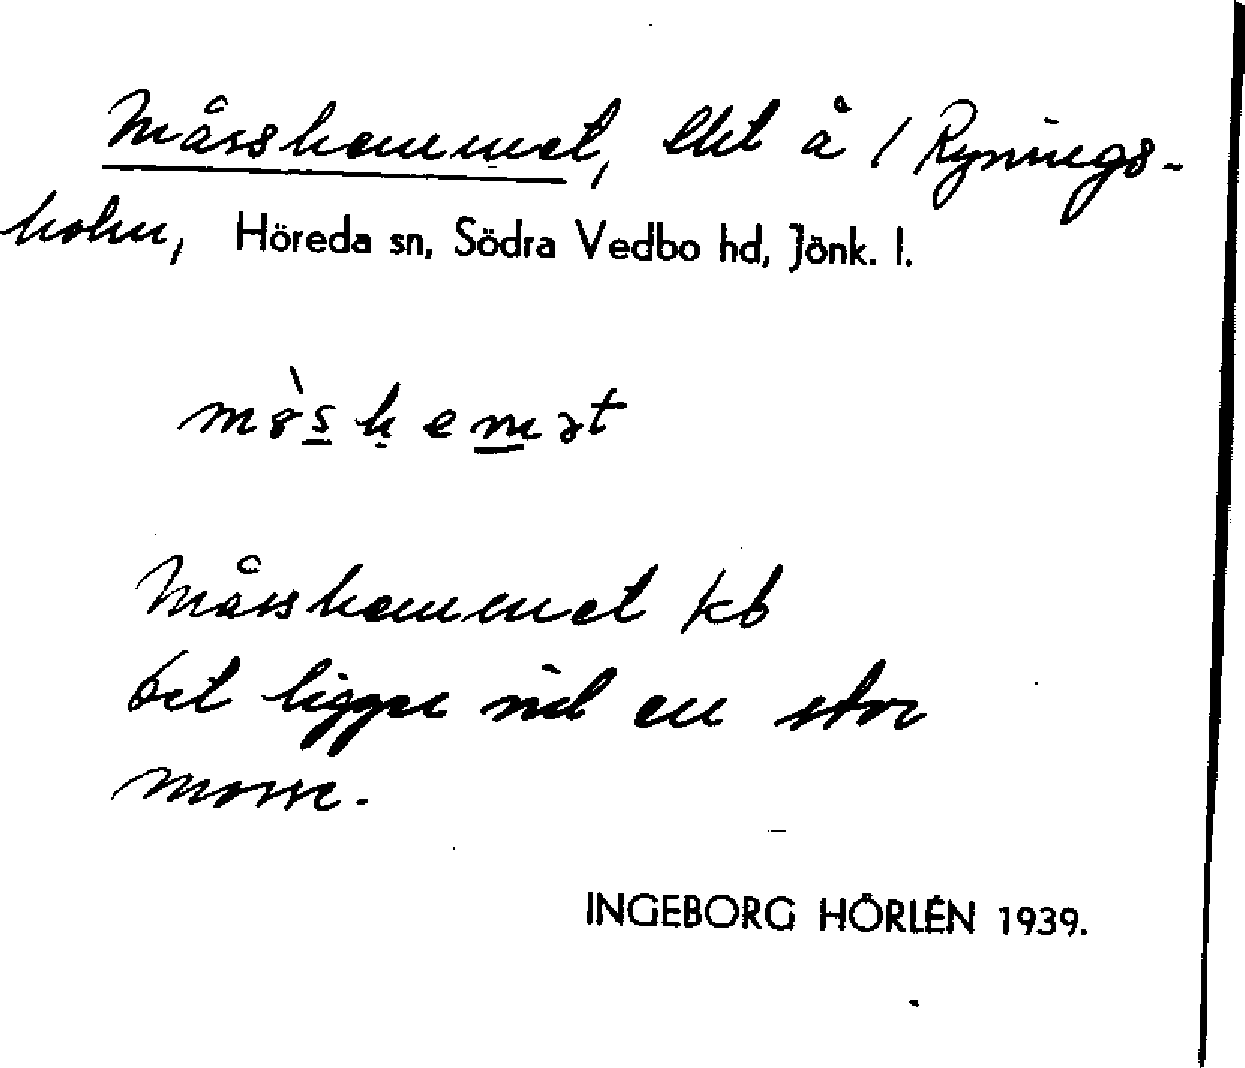 Måsshemmet, lht å 1 Rynnings-
holm, Höreda sn, Södra Vedbo hd, Jönk. l.
Måsshemmet kb
Det ligger vid en stor
mosse.
INGEBORG HÖRLÉN 1939.